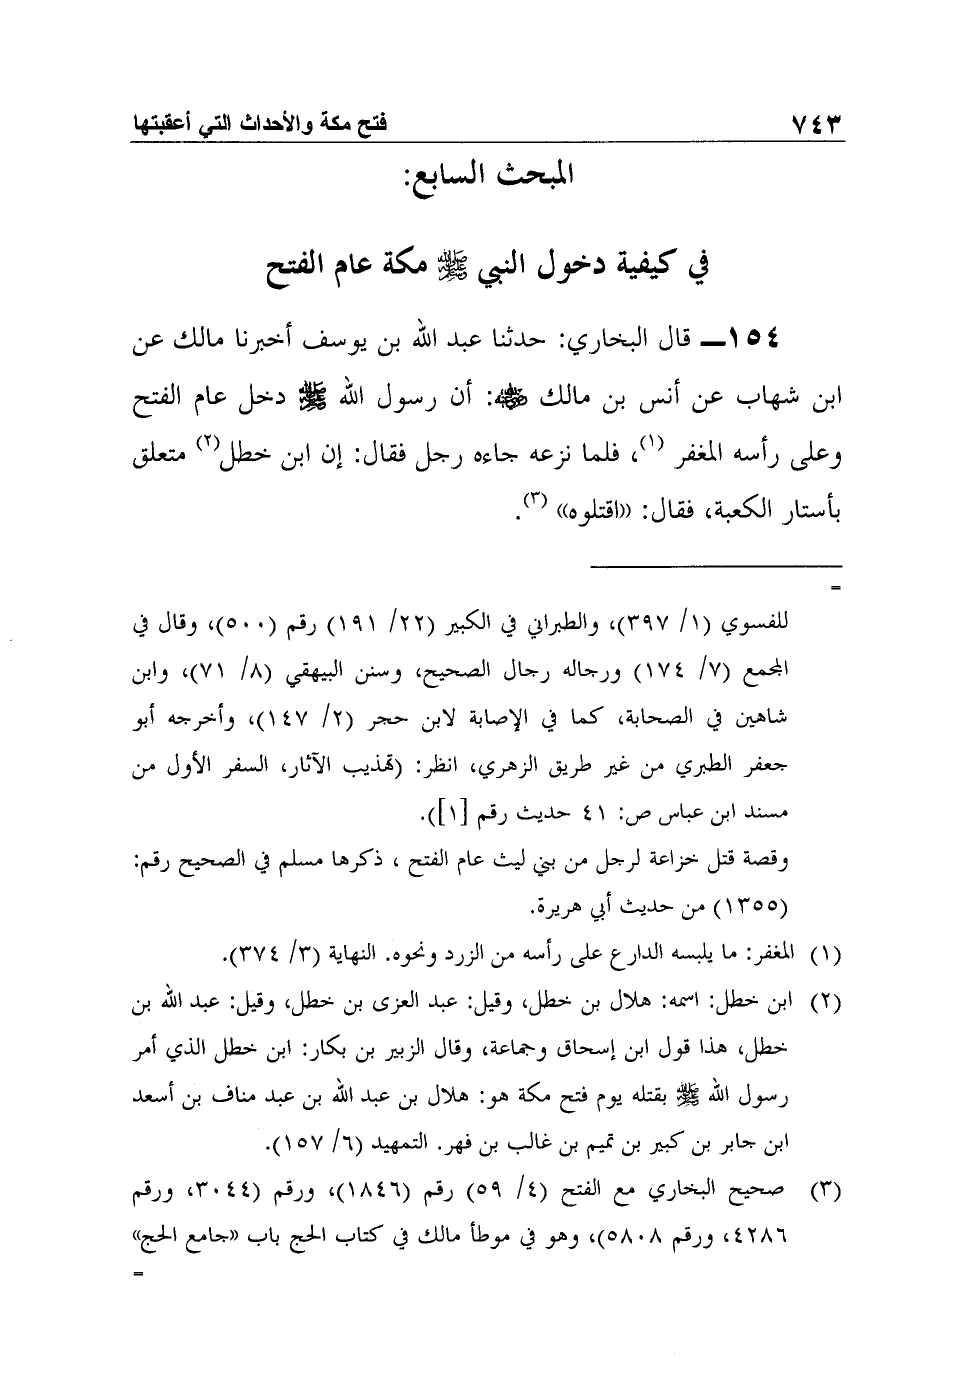 ٧٤٣ فتح مكة والأحداث التي أعقبتها
المبحث السابع:
في كيفية دخول النبي ﷺ مكة عام الفتح
١٥٤ـ قال البخاري: حدثنا عبد الله بن يوسف أخبرنا مالك عن
ابن شهاب عن أنس بن مالك ﵁: أن رسول الله ﷺ دخل عام الفتح
وعلى رأسه المغفر (١)، فلما نزعه جاءه رجل فقال: إن ابن خطل(٢) متعلق
بأستار الكعبة، فقال: «اقتلوه» (٣).
=
للفسوي (١/ ٣٩٧)، والطبراني في الكبير (٢٢/ ١٩١) رقم (٥٠٠)، وقال في
المجمع (٧/ ١٧٤) ورجاله رجال الصحيح، وسنن البيهقي (٨/ ٧١)، وابن
شاهين في الصحابة، كما في الإصابة لابن حجر (٢/ ١٤٧)، وأخرجه أبو
جعفر الطبري من غير طريق الزهري، انظر: (تهذيب الآثار، السفر الأول من
مسند ابن عباس ص: ٤١ حديث رقم [١]).
وقصة قتل خزاعة لرجل من بني ليث عام الفتح ، ذكرها مسلم في الصحيح رقم:
(١٣٥٥) من حديث أبي هريرة.
(١) المغفر: ما يلبسه الدارع على رأسه من الزرد ونحوه. النهاية (٣/ ٣٧٤).
(٢) ابن خطل: اسمه: هلال بن خطل، وقيل: عبد العزى بن خطل، وقيل: عبد الله بن
خطل، هذا قول ابن إسحاق وجماعة، وقال الزبير بن بكار: ابن خطل الذي أمر
رسول الله ﷺ بقتله يوم فتح مكة هو: هلال بن عبد الله بن عبد مناف بن أسعد
ابن جابر بن كبير بن تميم بن غالب بن فهر. التمهيد (٦/ ١٥٧).
(٣) صحيح البخاري مع الفتح (٤/ ٥٩) رقم (١٨٤٦)، ورقم (٣٠٤٤، ورقم
٤٢٨٦، ورقم ٥٨٠٨)، وهو في موطأ مالك في كتاب الحج باب «جامع الحج»
=